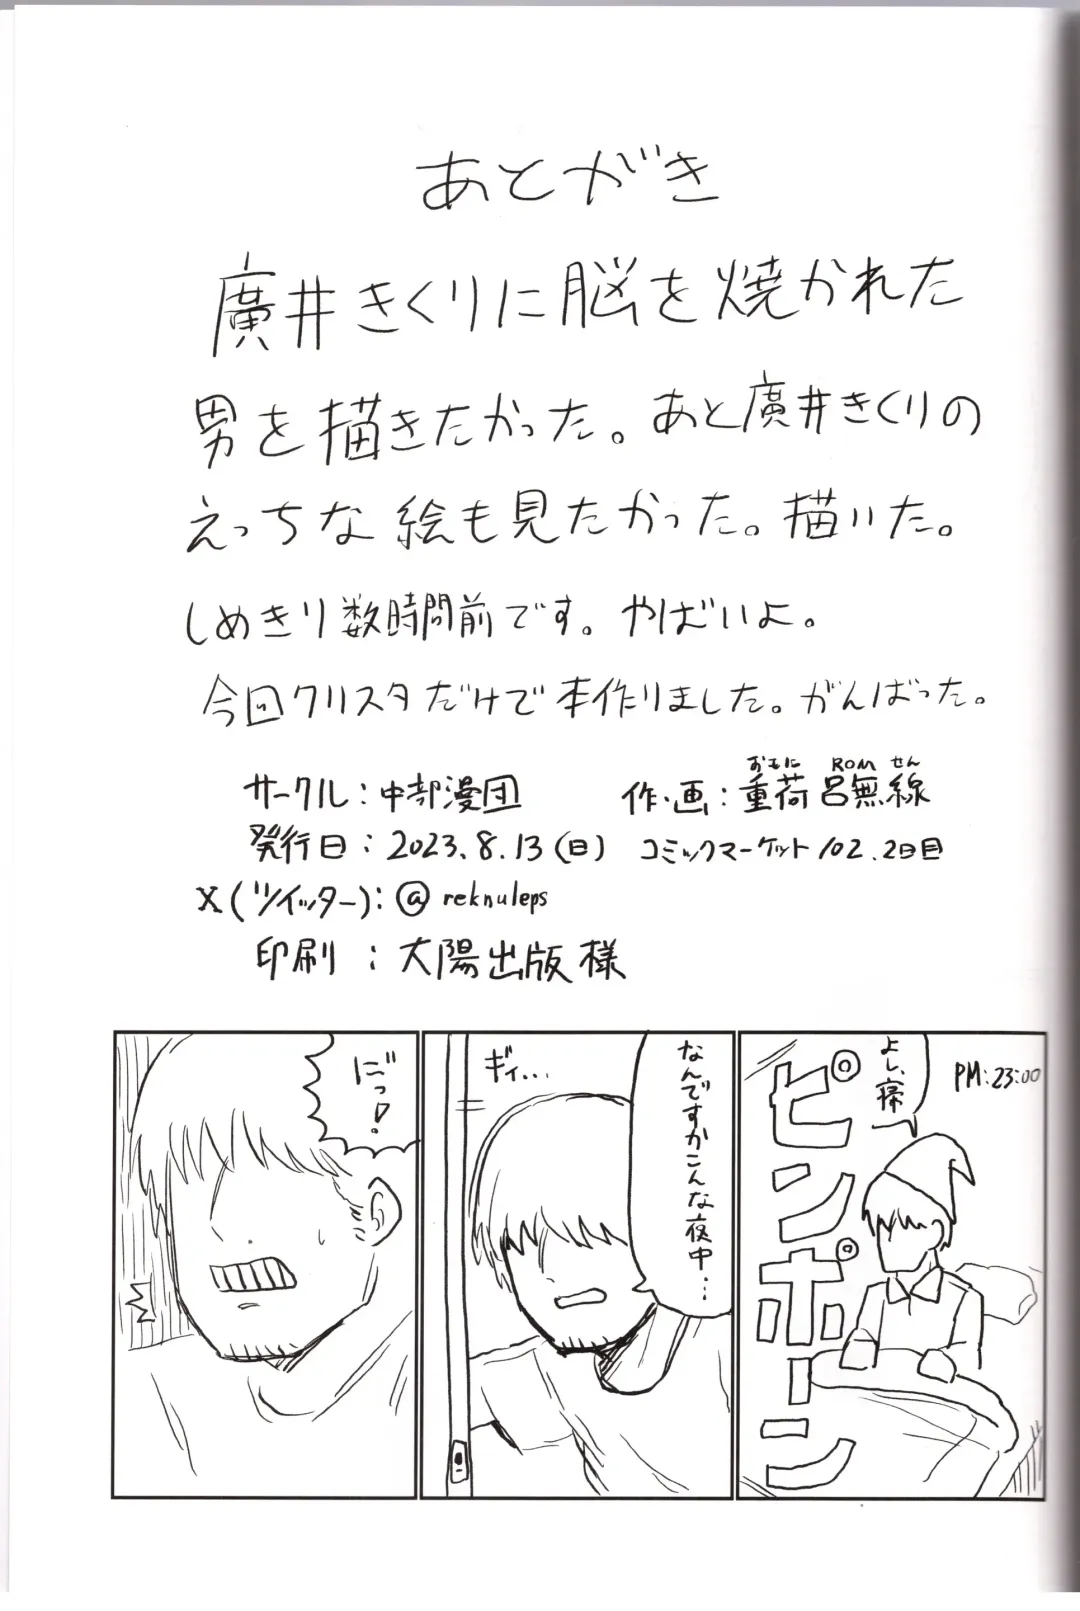 あとがき
廣井きくりに脳を焼かれた
男を描きたかった。あと廣井きくりの
えっちな絵も見たかった。描いた。
しめきり数時間前です。やばいよ。
今回クリスタだけで本作りました。がんばった。
サークル:中部漫団
作・画:重荷呂無線
おもに ROM せん
発行日:2023.8.13(日) コミックマーケット102.2日目
X(ツイッター):@reknuleps
印刷:大陽出版様
PM:23:00
よし、寝
ピンポーン
なんですかこんな夜中…
ギィ…
に゛っ!